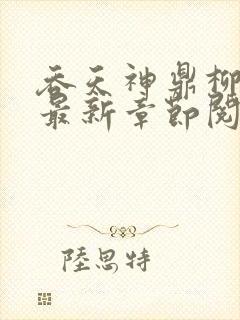 吞天神鼎柳
最新章節閱
陸思特